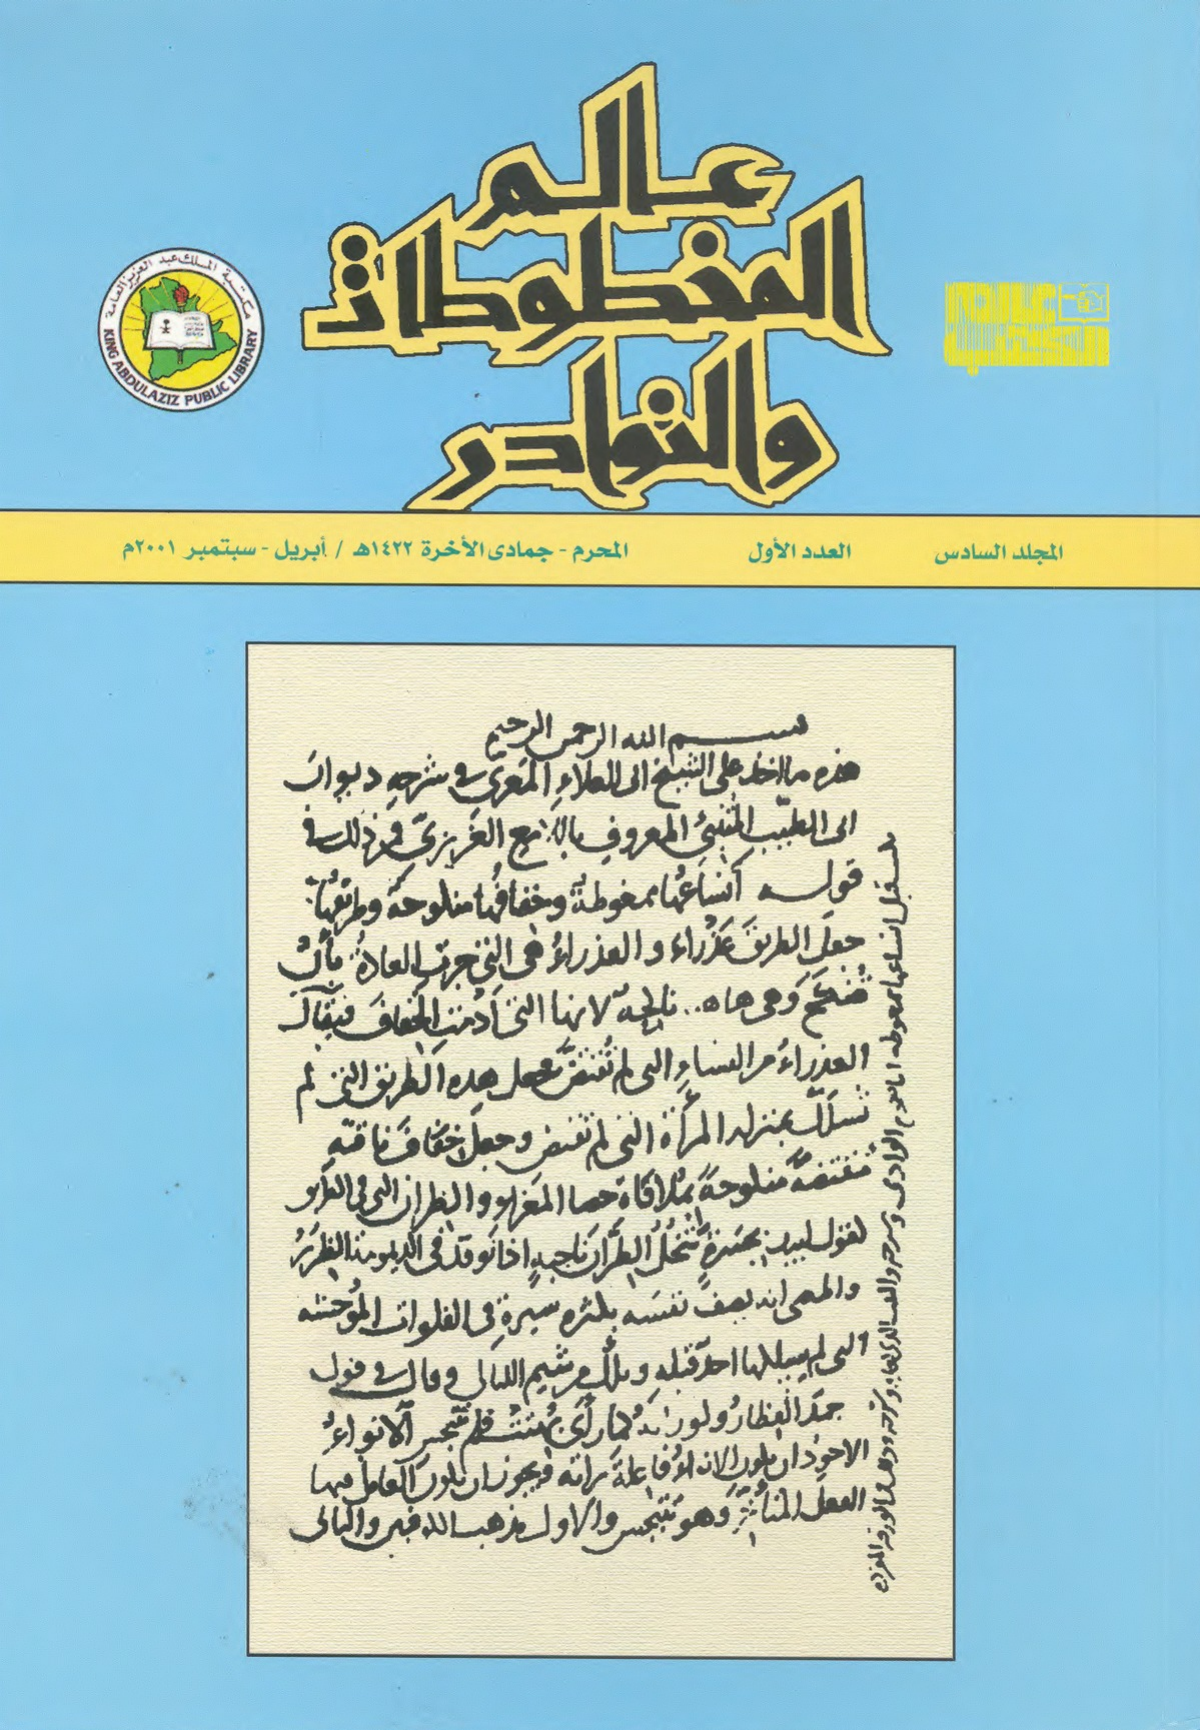 عالم
المخطوطات
والنوادر
مكتبة الملك عبد العزيز العامة
KING ABDULAZIZ PUBLIC LIBRARY
عالم
الكتب
المجلد السادس
العدد الأول
المحرم - جمادى الآخرة ١٤٢٢هـ / أبريل - سبتمبر ٢٠٠١م
بسم الله الرحمن الرحيم
هذه ما اخذ على الشيخ ابى العلاءِ المَعَرى فى شرحِهِ ديوان
ابى الطيِّب المتنبّىُ المعروفِ باللامع العَزِيزىّ فمن ذلك فى
قوله أنساعُها ممغوطةٌ وخفافُها منكوحةٌ وطريقُها
جعلَ الطريقَ عَذْراءَ والعذراءُ هى التى جرتِ العادةُ بأنْ
تُنكحَ وهى هاهنا ناكحةٌ لانها التى أدْمتِ الخفافَ فيقال
العذراءُ من النساءِ التى لم تُفتضَّ فجعل هذه الطريق التى لم
تسلكْ بمنزله المرأة التى لم تفتض وجعلَ خفافَ ناقتهِ
مفتضةً منكوحةً بمُلاقاة حصا المَعزاءِ والظران التى فى الطريق
كقول لبيد بجَسْرةٍ تنْجُلُ الظُّرّانَ ناجيةٍ اذا توقّد فى الديمومة الظُّرَرُ
والمعنى انه يصفُ نفسَه بكثره سيرةِ فى الفلوات المُوحشه
التى لم يسلكها احدٌ قبله وتلك من شيم الليالى وقال فى قول
جمَدَ القِطارُ ولو رأتهُ كما رأى بُهتتْ فلم تتبجسِ الأنواءُ
الاجودُ ان يكون الانواءُ فاعلةَ رأته ويجوز ان يكون العامل فيها
الفعلَ المتأخِّرَ وهو تتبجس والاول مذهب الكوفيين والثانى